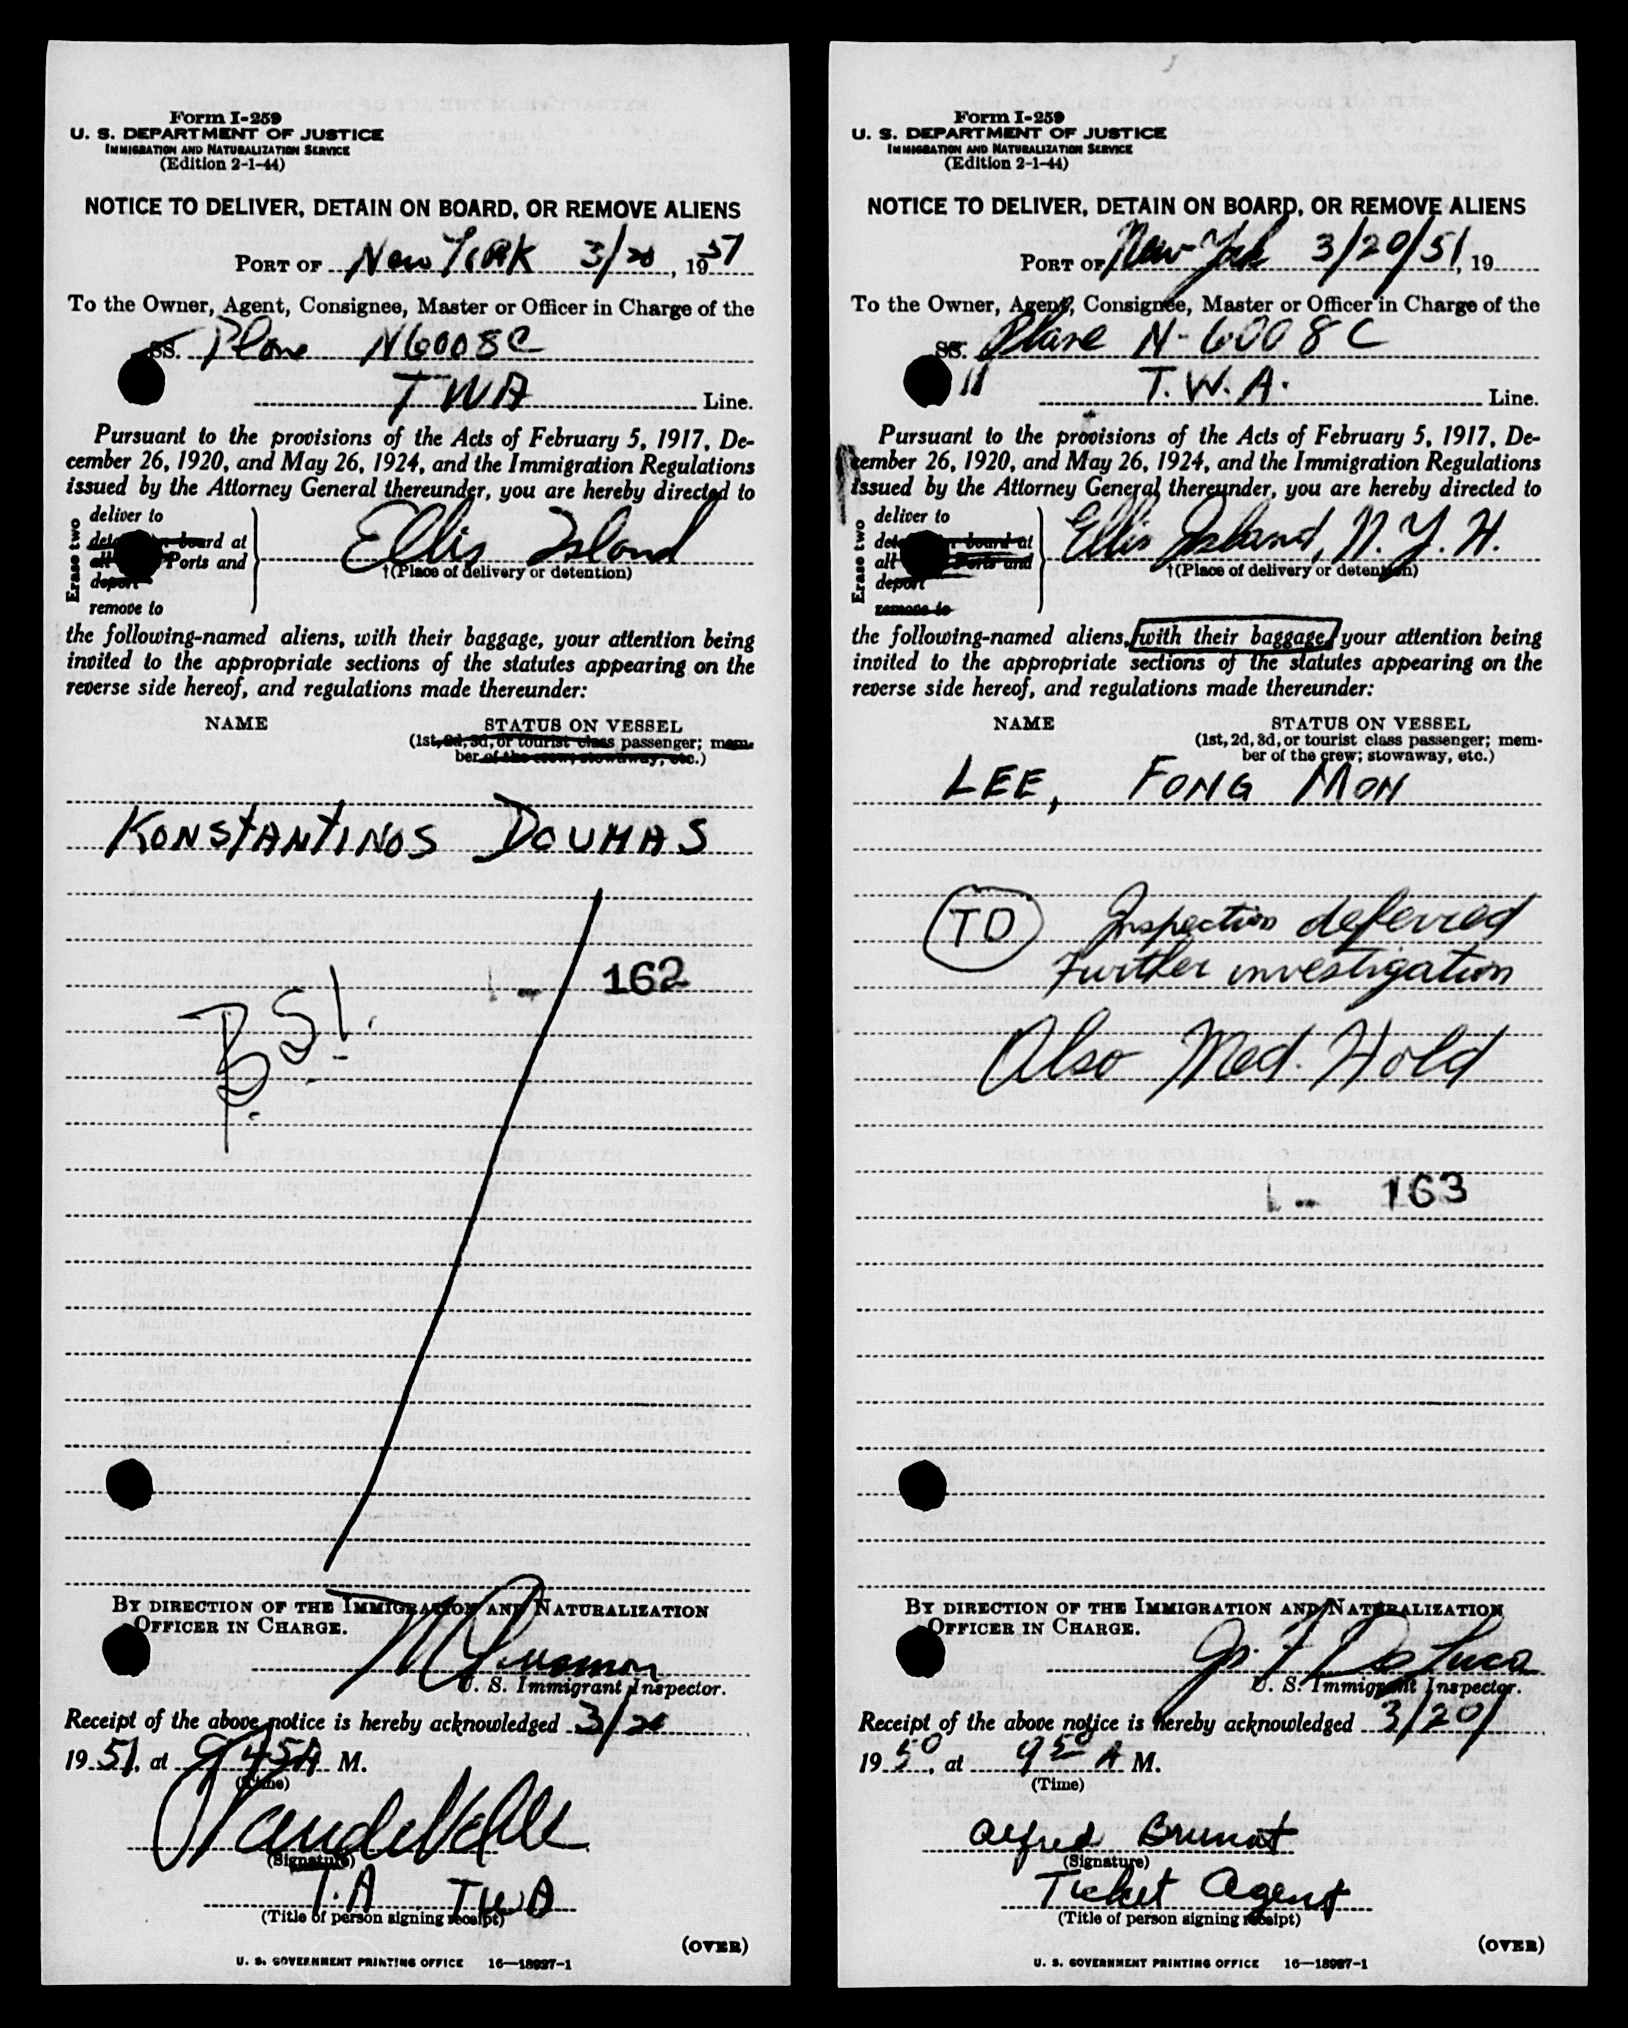 Form I-259
U. S. DEPARTMENT OF JUSTICE
IMMIGRATION AND NATURALIZATION SERVICE
(Edition 2-1-44)
NOTICE TO DELIVER, DETAIN ON BOARD, OR REMOVE ALIENS
PORT OF New York 3/20, 1951
To the Owner, Agent, Consignee, Master or Officer in Charge of the
SS. Plane N6008C
TWA Line.
Pursuant to the provisions of the Acts of February 5, 1917, De-
cember 26, 1920, and May 26, 1924, and the Immigration Regulations
issued by the Attorney General thereunder, you are hereby directed to
Erase two
deliver to
board at
all Ports and
deport
remove to
Ellis Island
†(Place of delivery or detention)
the following-named aliens, with their baggage, your attention being
invited to the appropriate sections of the statutes appearing on the
reverse side hereof, and regulations made thereunder:
NAME STATUS ON VESSEL
(1st, 2d, 3d, or tourist class passenger; mem-
ber of the crew; stowaway, etc.)
KONSTANTINOS DOUMAS
162
B.S.I.
BY DIRECTION OF THE IMMIGRATION AND NATURALIZATION
OFFICER IN CHARGE.
U. S. Immigrant Inspector.
Receipt of the above notice is hereby acknowledged 3/20
1951, at 9:45A M.
(Time)
(Signature)
T.A TWA
(Title of person signing receipt)
(OVER)
U. S. GOVERNMENT PRINTING OFFICE 16—18987-1
Form I-259
U. S. DEPARTMENT OF JUSTICE
IMMIGRATION AND NATURALIZATION SERVICE
(Edition 2-1-44)
NOTICE TO DELIVER, DETAIN ON BOARD, OR REMOVE ALIENS
PORT OF New York 3/20/51, 19
To the Owner, Agent, Consignee, Master or Officer in Charge of the
SS. Plane N-6008C
T.W.A. Line.
Pursuant to the provisions of the Acts of February 5, 1917, De-
cember 26, 1920, and May 26, 1924, and the Immigration Regulations
issued by the Attorney General thereunder, you are hereby directed to
Erase two
deliver to
board at
all Ports and
deport
remove to
Ellis Island, N.Y.H.
†(Place of delivery or detention)
the following-named aliens, with their baggage, your attention being
invited to the appropriate sections of the statutes appearing on the
reverse side hereof, and regulations made thereunder:
NAME STATUS ON VESSEL
(1st, 2d, 3d, or tourist class passenger; mem-
ber of the crew; stowaway, etc.)
LEE, FONG MON
TD Inspection deferred
Further investigation
Also Med. Hold
163
BY DIRECTION OF THE IMMIGRATION AND NATURALIZATION
OFFICER IN CHARGE.
De Luca
U. S. Immigrant Inspector.
Receipt of the above notice is hereby acknowledged 3/20/
1950, at 9 50 A M.
(Time)
Alfred Brunot
(Signature)
Ticket Agent
(Title of person signing receipt)
(OVER)
U. S. GOVERNMENT PRINTING OFFICE 16—18987-1